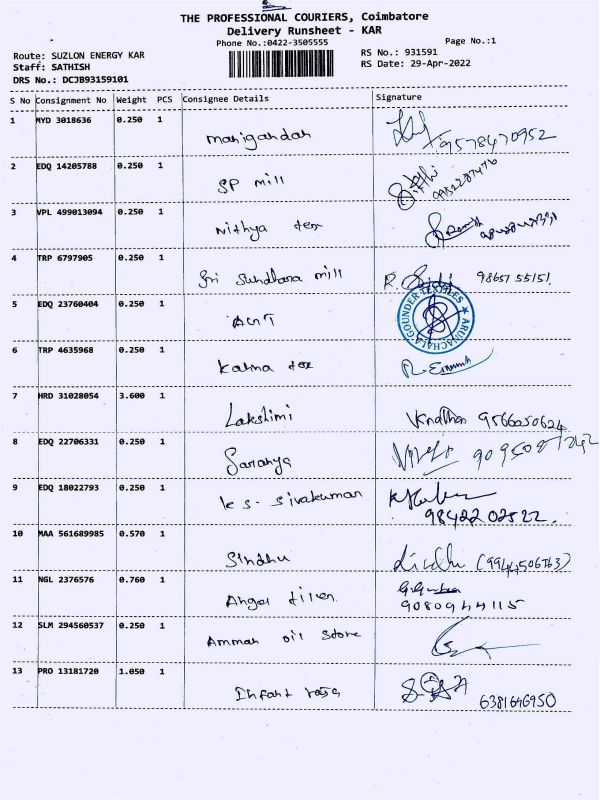 THE PROFESSIONAL COURIERS, Coimbatore
Delivery Runsheet - KAR
Phone No.:0422-3505555
Page No.:1
Route: SUZLON ENERGY KAR
Staff: SATHISH
DRS No.: DCJB93159101
RS No.: 931591
RS Date: 29-Apr-2022
S No Consignment No Weight PCS Consignee Details Signature
1 MYD 3018636 0.250 1 manigandan 9578470952
2 EDQ 14205788 0.250 1 SP mill
3 VPL 499013094 0.250 1 Nithya tex
4 TRP 6797905 0.250 1 Sri Sundhara mill R. 98657 55151.
5 EDQ 23760404 0.250 1 ACNT ARUNACHALA GOUNDER TEXTILES
6 TRP 4635968 0.250 1 Kalma tex
7 HRD 31028054 3.600 1 Lakshimi 9566050624
8 EDQ 22706331 0.250 1 Saranya
9 EDQ 18022793 0.250 1 K S - Sivakumar
98422 02522.
10 MAA 561689985 0.570 1 Sindhu Sindhu (9944506763)
11 NGL 2376576 0.760 1 Angel
9080944115
12 SLM 294560537 0.250 1 Amman oil Store
13 PRO 13181720 1.050 1 Infant
6381646950